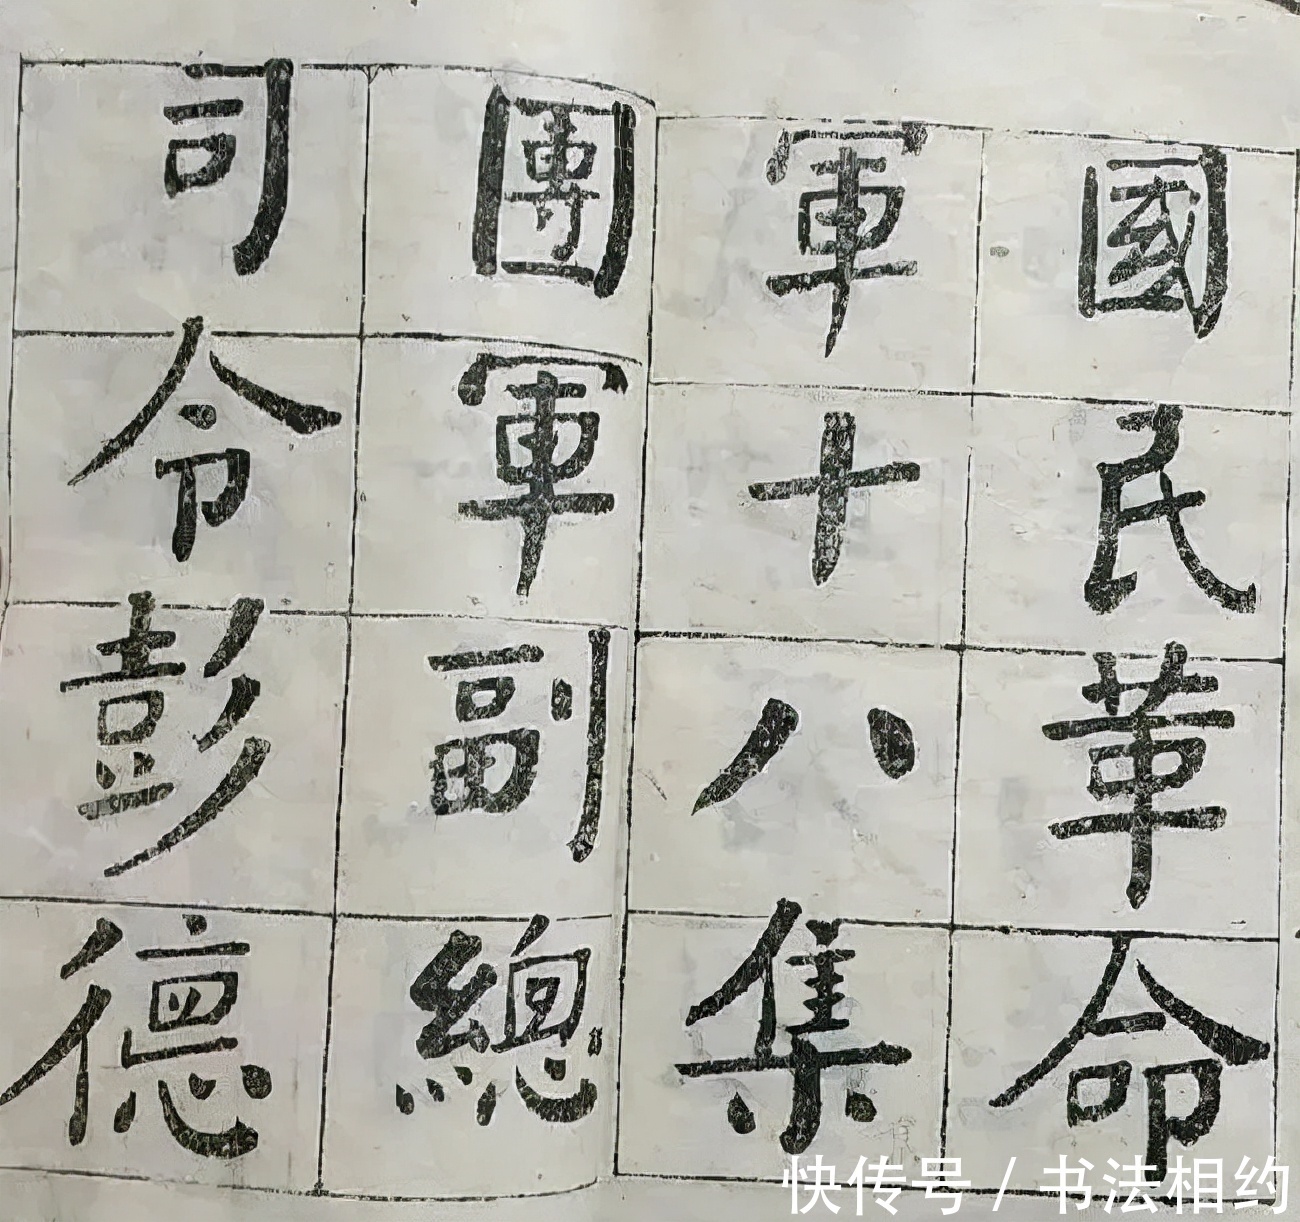 國民革命
軍十八集
團軍副總
司令彭德
快传号 / 书法相约